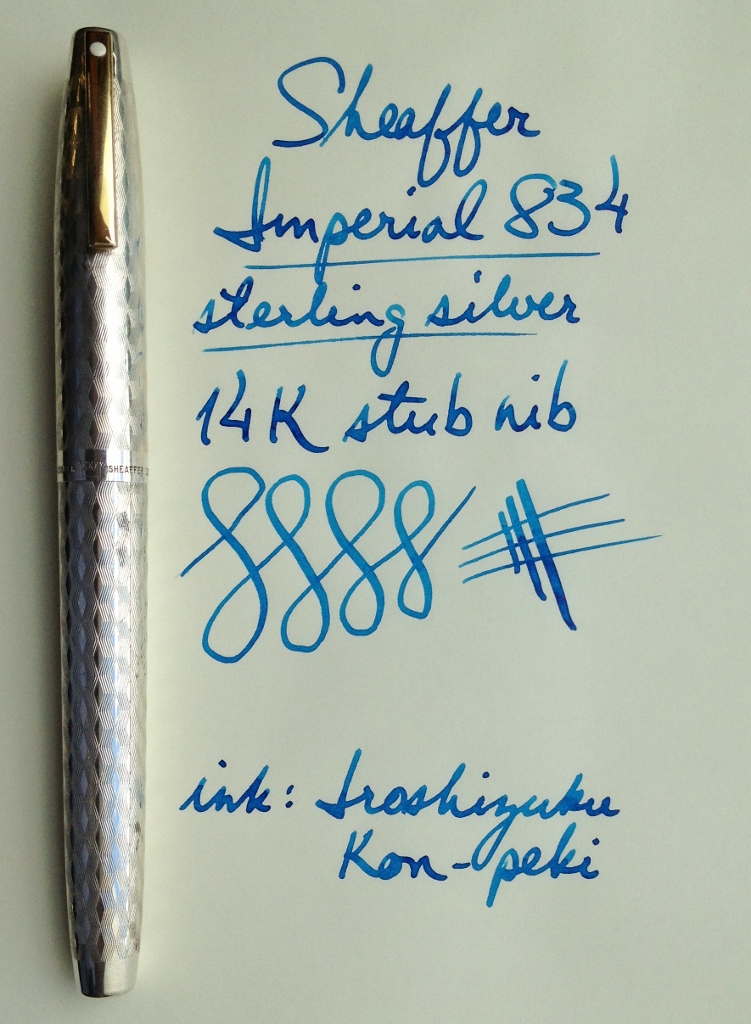 Sheaffer
Imperial 834
sterling silver
14K stub nib
SHEAFFER
ink: Iroshizuku
Kon-peki